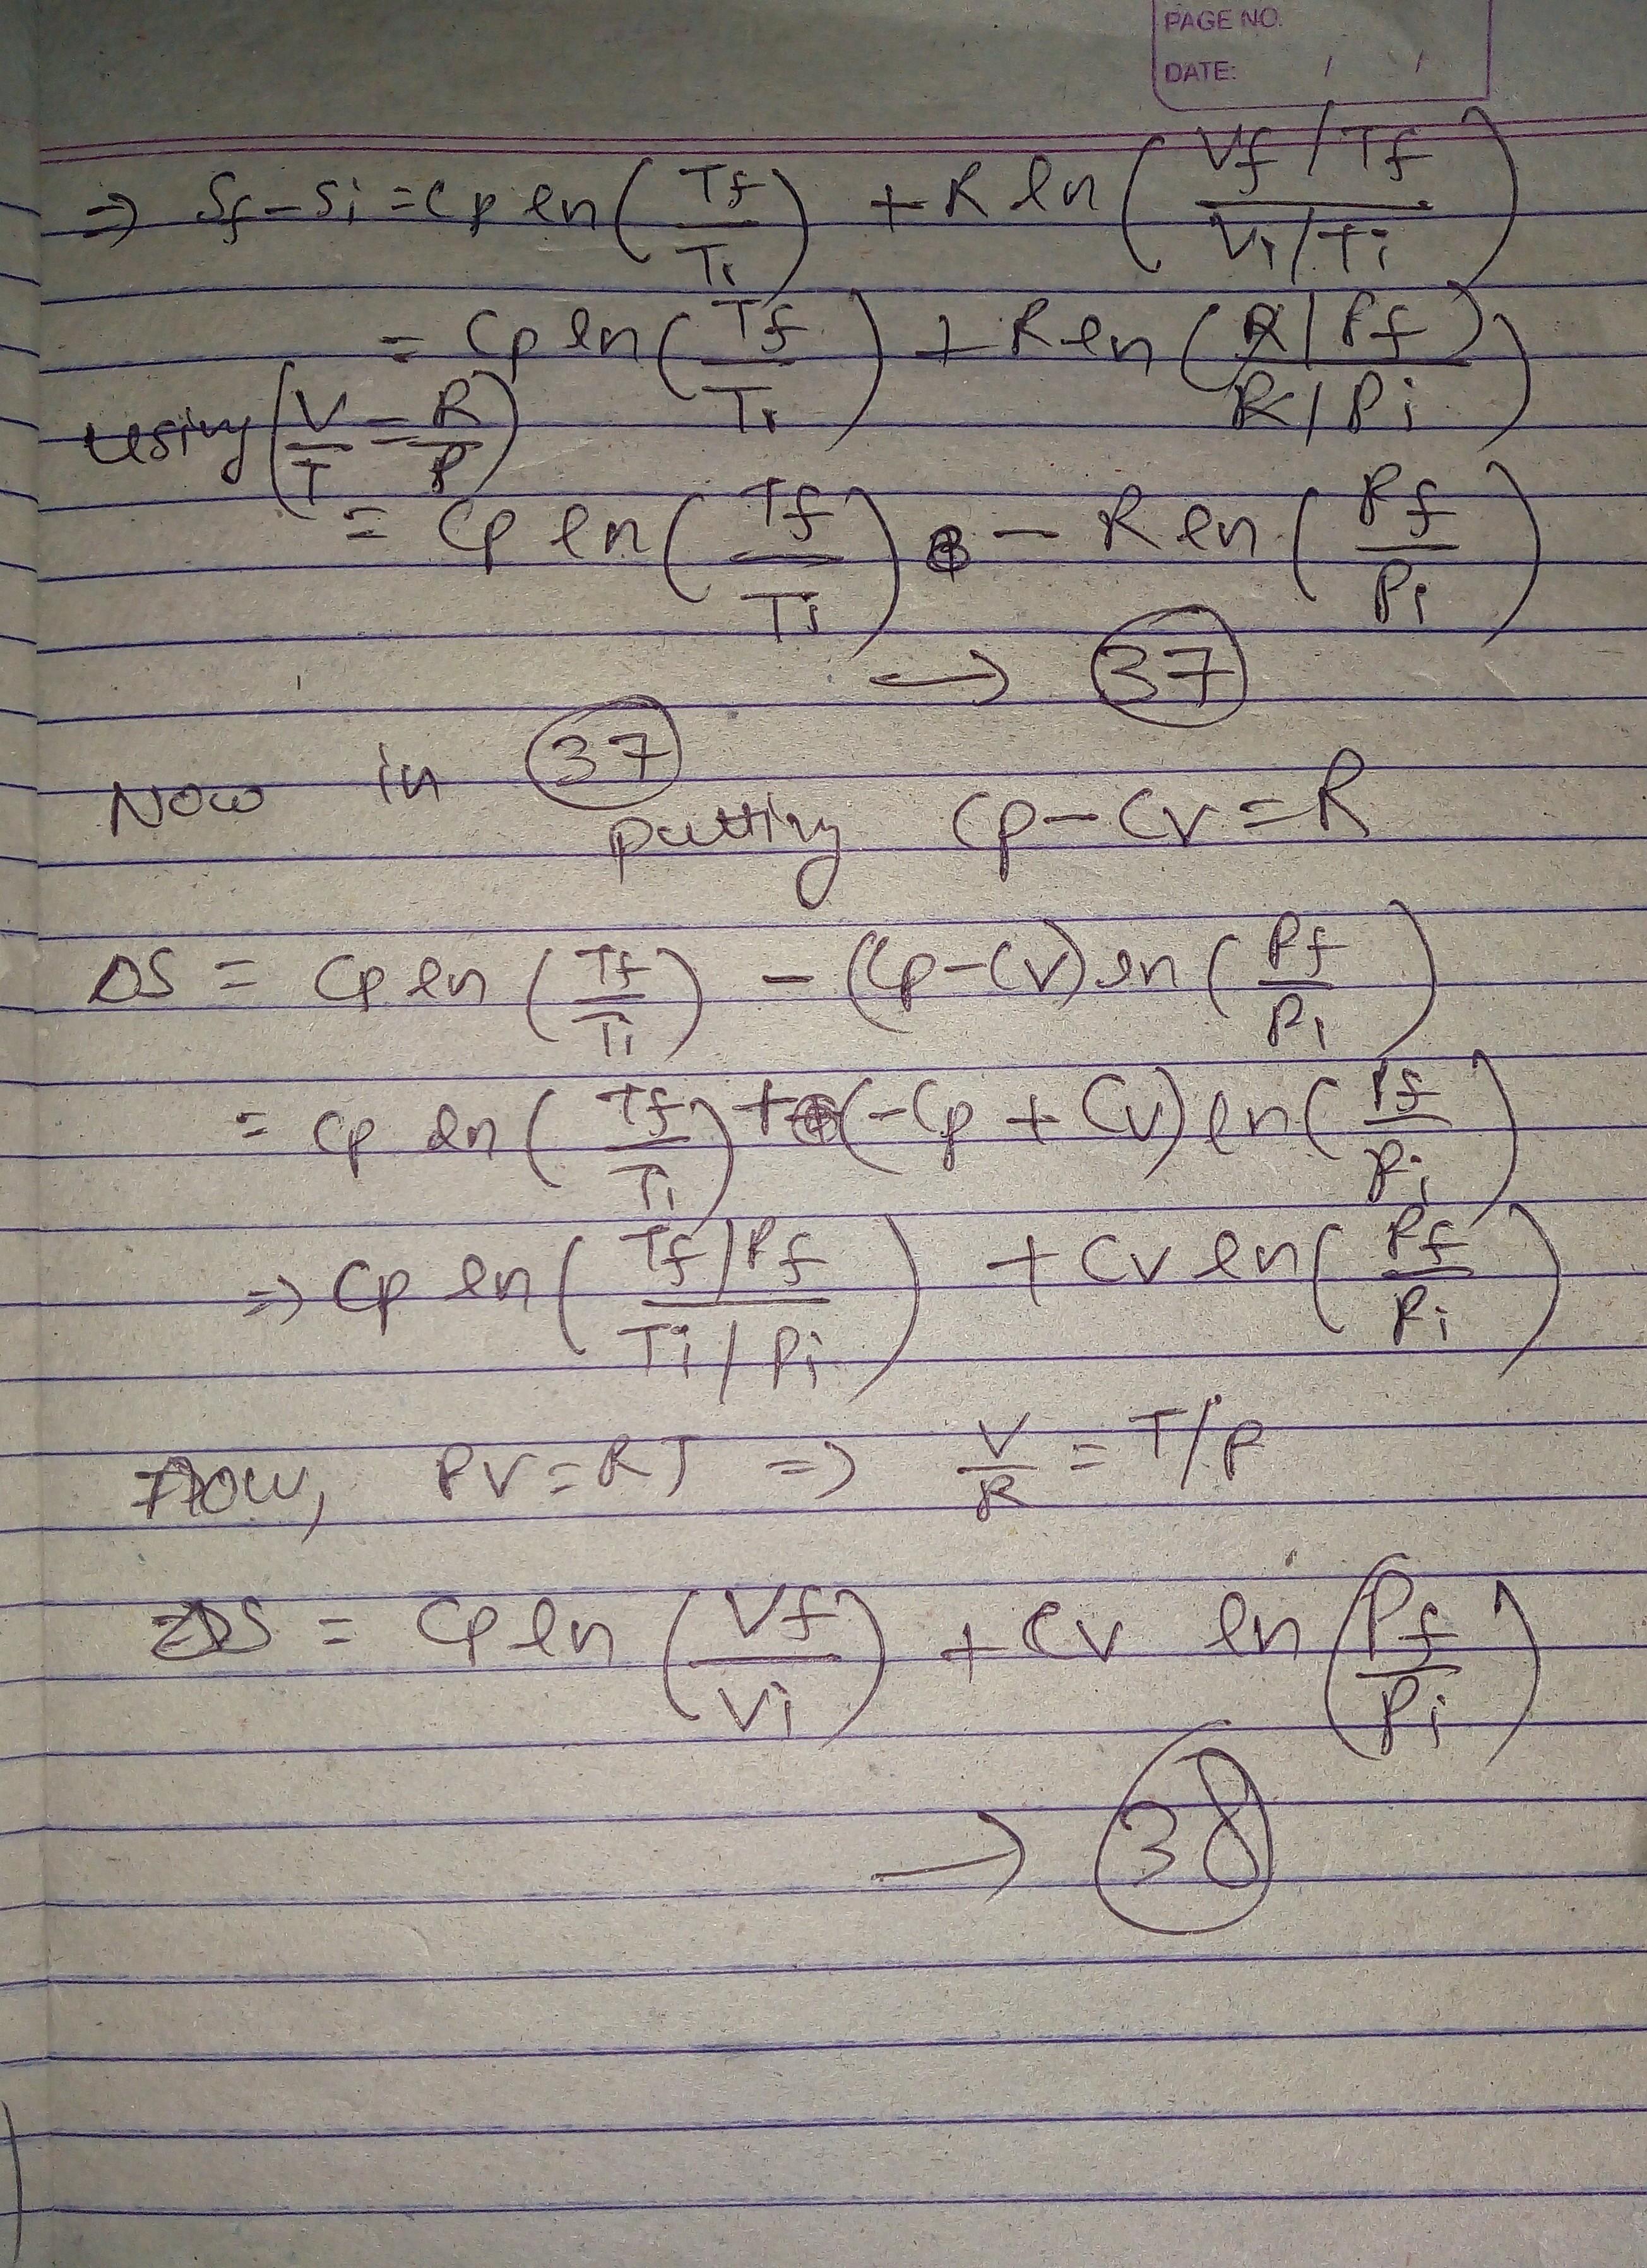 PAGE NO.
DATE: / /
⇒ Sf - Si = Cp ln (Tf / Ti) + R ln ((Vf / Tf) / (Vi / Ti))
= Cp ln (Tf / Ti) + R ln ((R / Pf) / (R / Pi))
using (V/T = R/P)
= Cp ln (Tf / Ti) - R ln (Pf / Pi)
→ 37
Now in 37
putting Cp - Cv = R
ΔS = Cp ln (Tf / Ti) - (Cp - Cv) ln (Pf / Pi)
= Cp ln (Tf / Ti) + (-Cp + Cv) ln (Pf / Pi)
⇒ Cp ln ((Tf / Pf) / (Ti / Pi)) + Cv ln (Pf / Pi)
Now, PV = RT ⇒ V/R = T/P
ΔS = Cp ln (Vf / Vi) + Cv ln (Pf / Pi)
→ 38